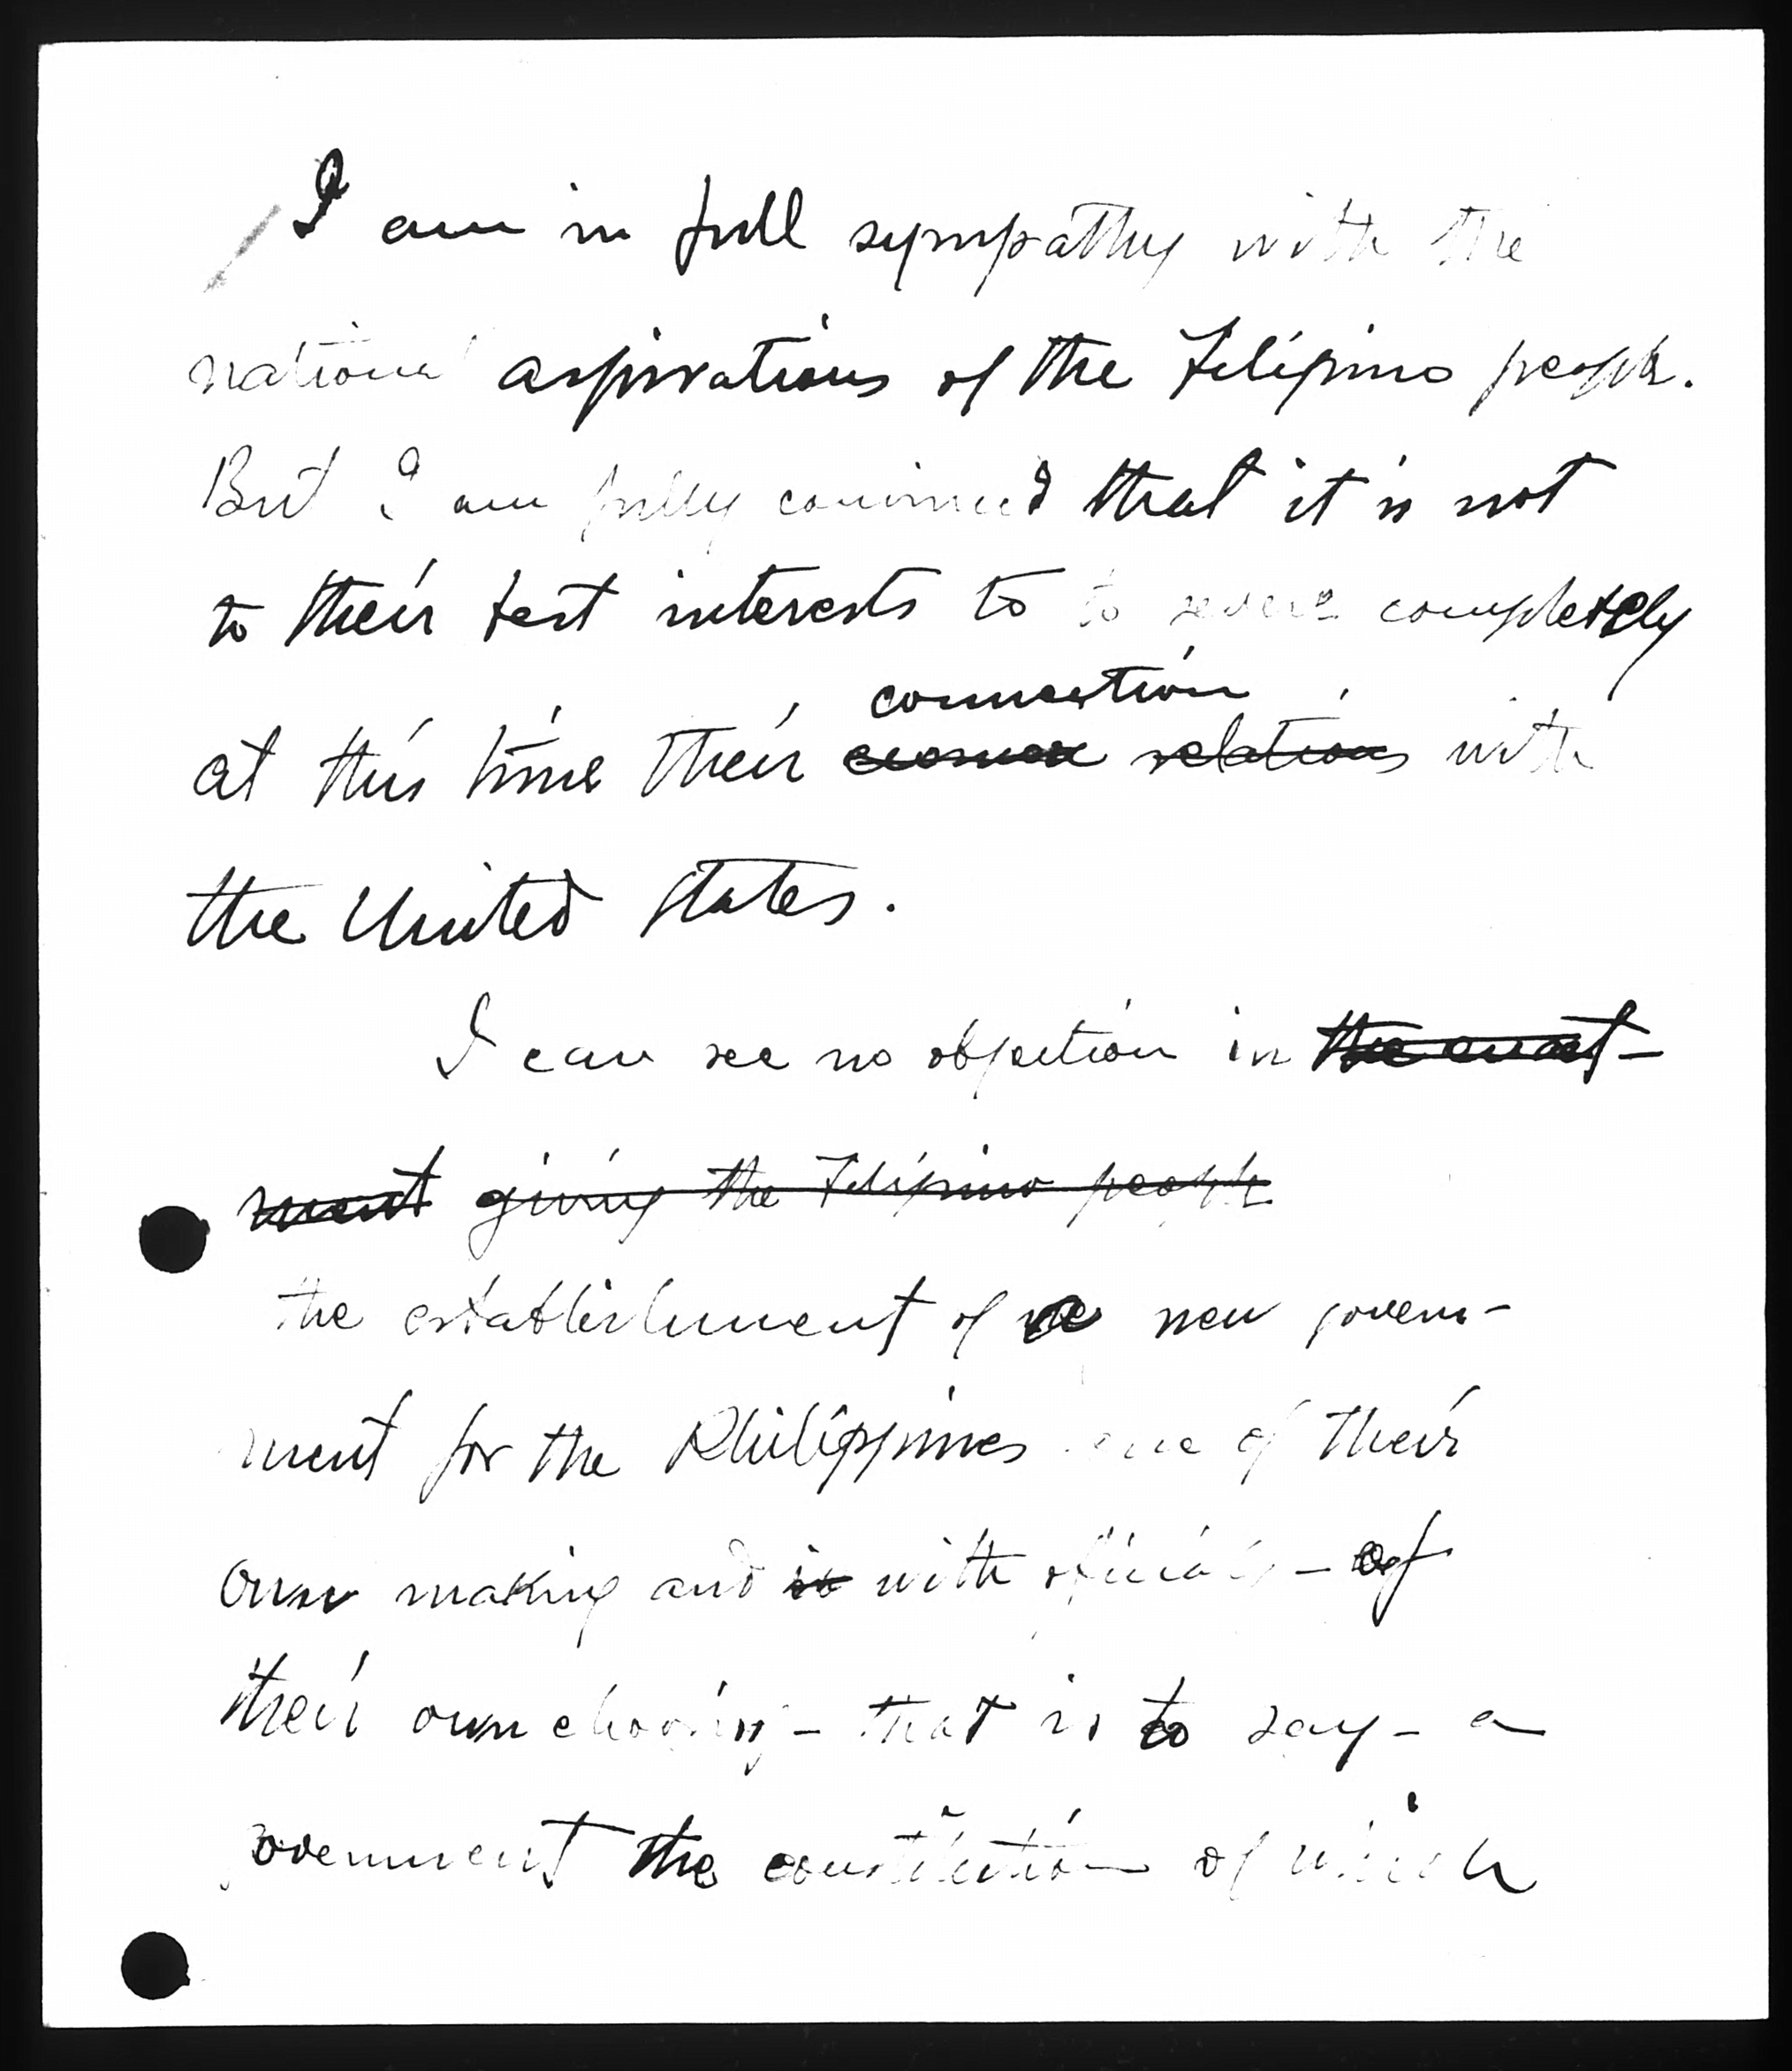 I am in full sympathy with the
national aspirations of the Filipino people.
But I am fully convinced that it is not
to their best interests to to sever completely
connection
at this time their relations with
the United States.
I can see no objection in the enact-
ment giving the Filipino people
the establishment of a new govern-
ment for the Philippines one of their
own making and is with officials - of
their own choosing - that is to say - a
government the constitution of which